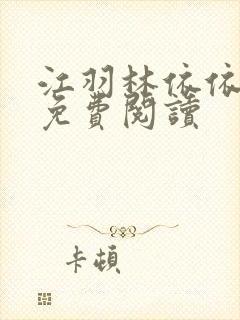 江羽林依依
免費閱讀
卡頓